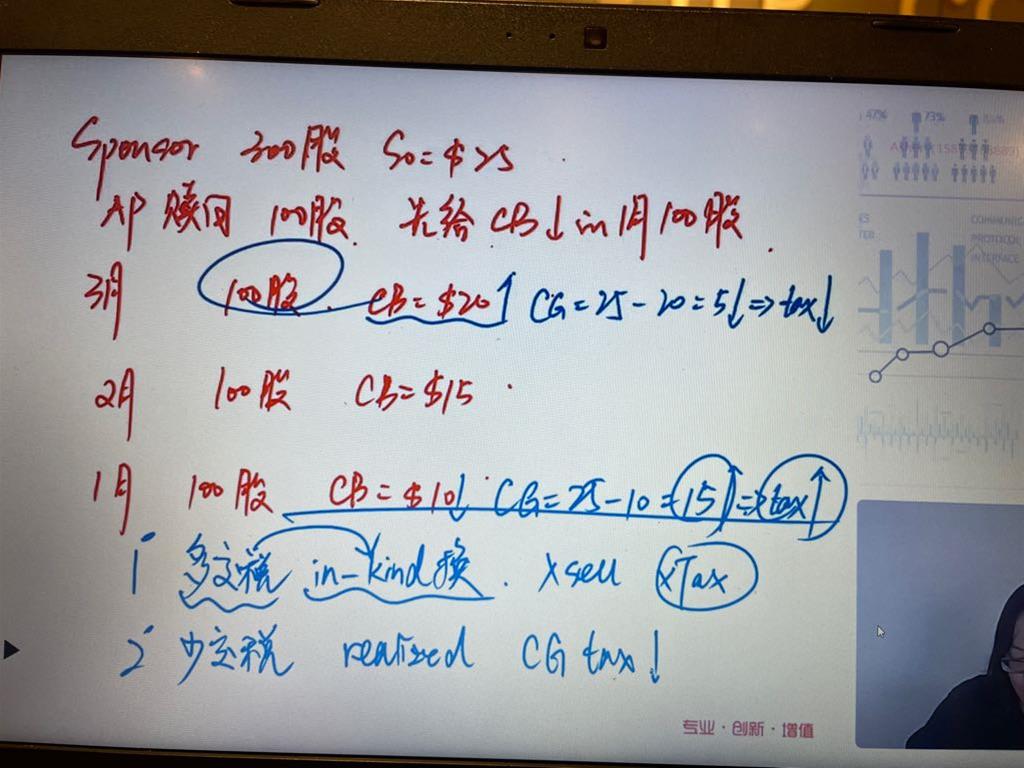 Sponsor 300股 S0=$25.
AP 赎回 100股. 先给 CB↓ in 1月 100股.
3月 100股. CB=$20↑ CG=25-20=5↓⇒tax↓
2月 100股 CB=$15.
1月 100股 CB=$10↓ CG=25-10=15↑⇒tax↑
1° 多交税 in-kind换. xsell xTax
2° 少交税 realized CG tax↓
47% 73%
COMMUNIC
PROTOCOL
INTERFACE
专业·创新·增值